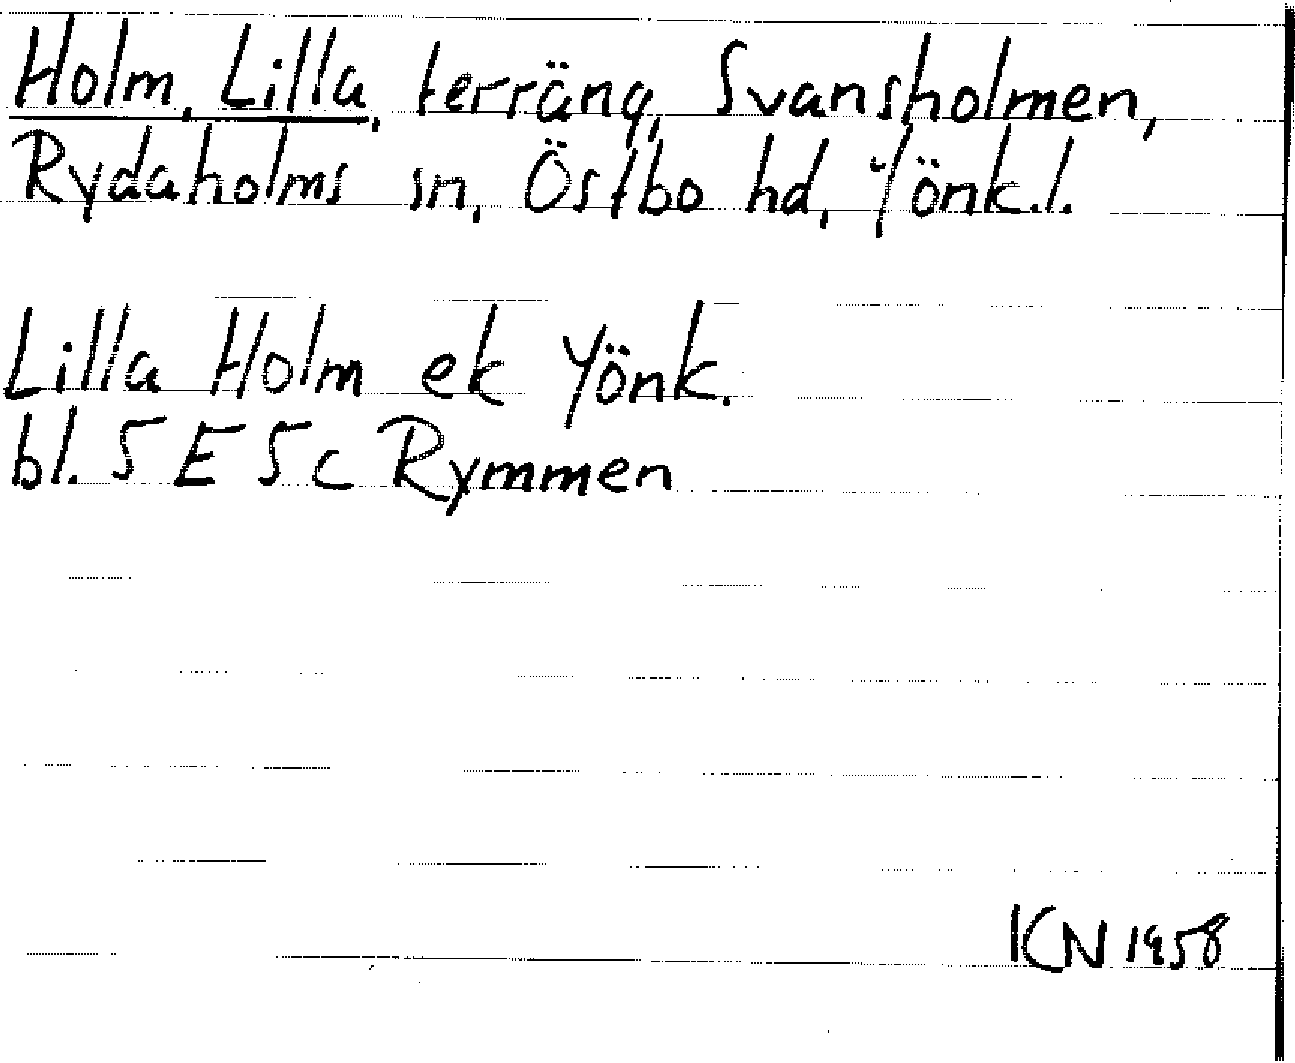 Holm, Lilla, terräng, Svansholmen,
Rydaholms sn, Östbo hd, Jönk.l.
Lilla Holm ek Jönk.
bl. 5 E 5 c Rymmen
KN 1958